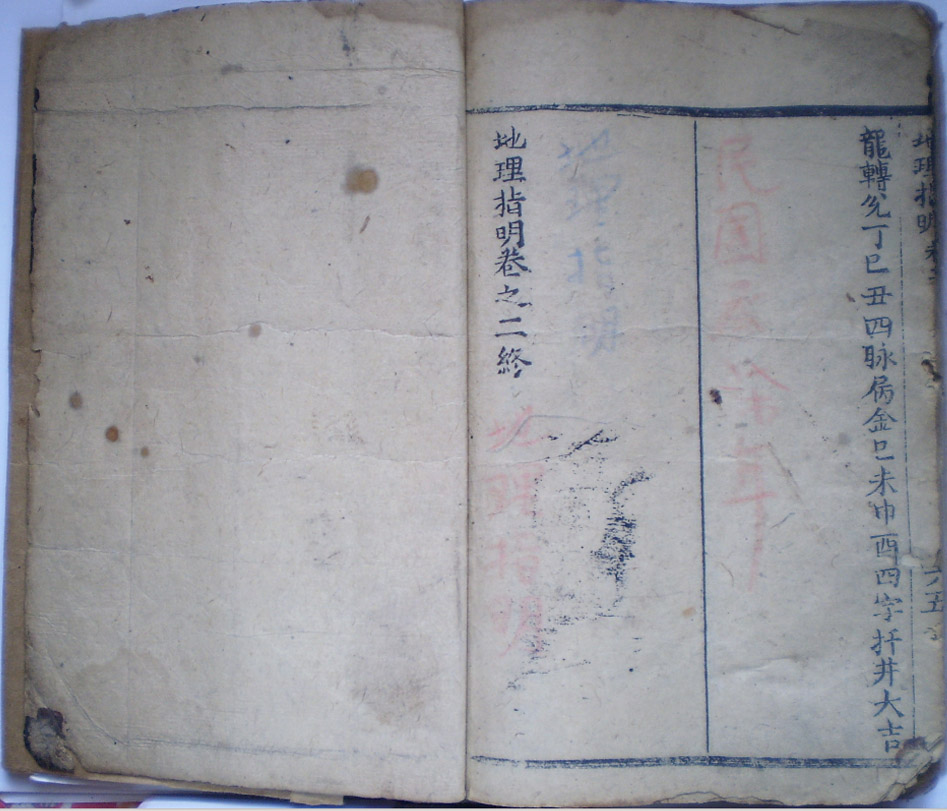 地理指明卷
六五
龍轉兊丁巳丑四脉屬金巳未申酉四字扦井大吉
民国拾年
地理指明
地理指明卷之二終
地理指明